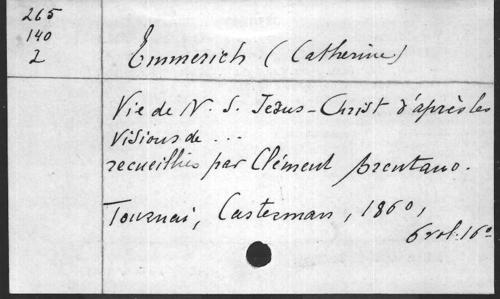 265
140
2
Emmerich (Catherine)
Vie de N. S. Jesus-Christ d'après les
Visions de ...
recueillies par Clément Brentano.
Tournai, Casterman, 1860,
6 vol. 16°